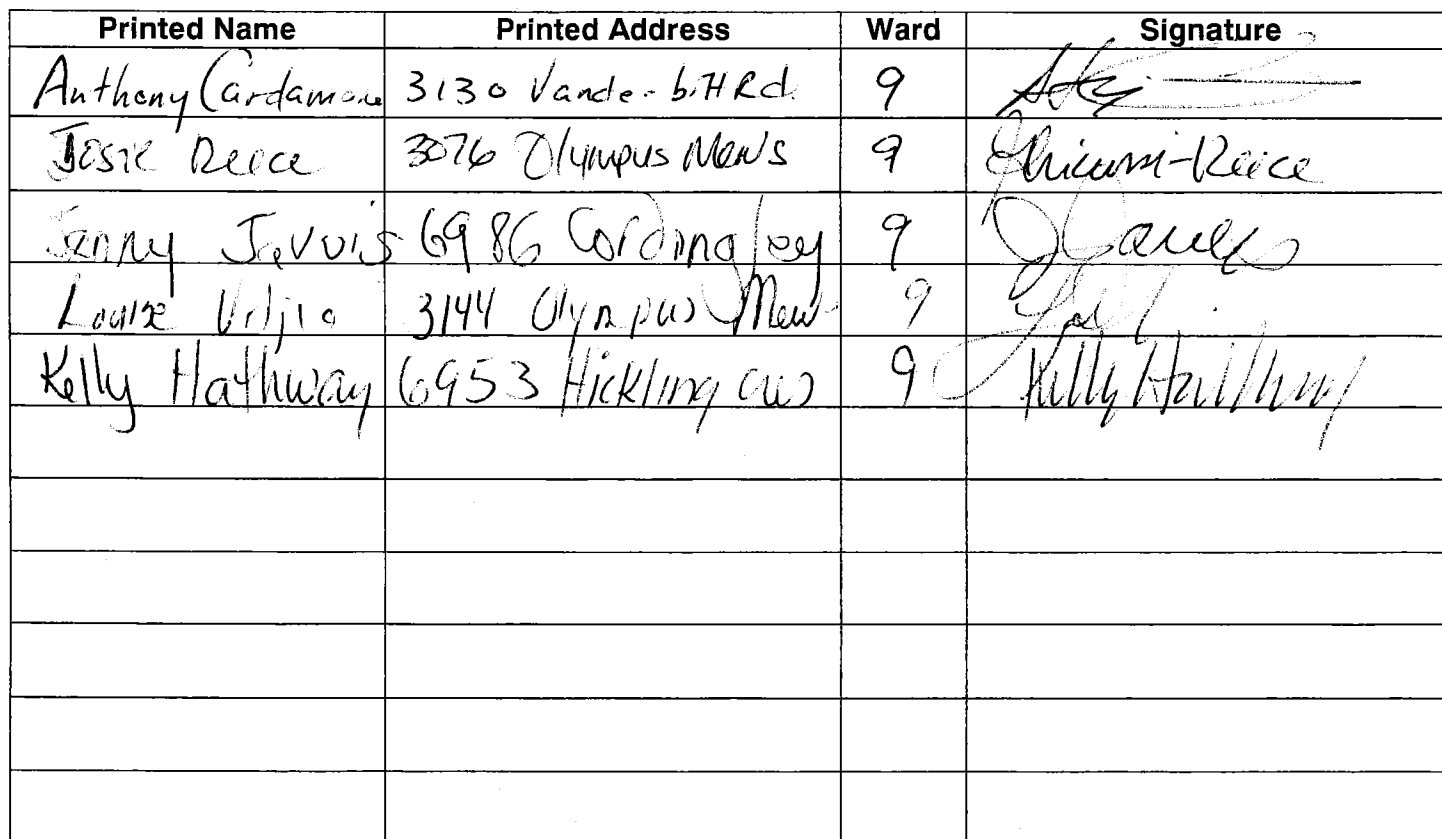 Printed Name Printed Address Ward Signature
Anthony Cardamone 3130 Vanderbilt Rd. 9
Josie Reece 3076 Olympus Mews 9 -Reece
Jenny Jarvis 6986 Cordingley 9
Louise 3144 Olympus Mew 9
Kelly Hathway 6953 Hickling cres 9 Kelly Hathway